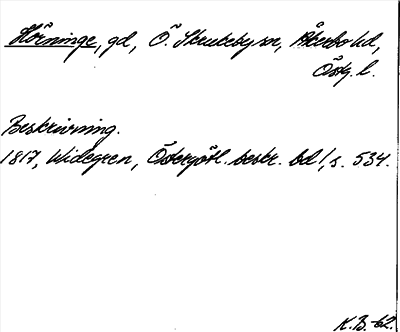 Hörninge, gd, Ö. Skrukeby sn, Åkerbo hd,
Östg. l.
Beskrivning.
1817, Widegren, Östergötl. beskr. bd 1, s. 534.
K.B.-62.